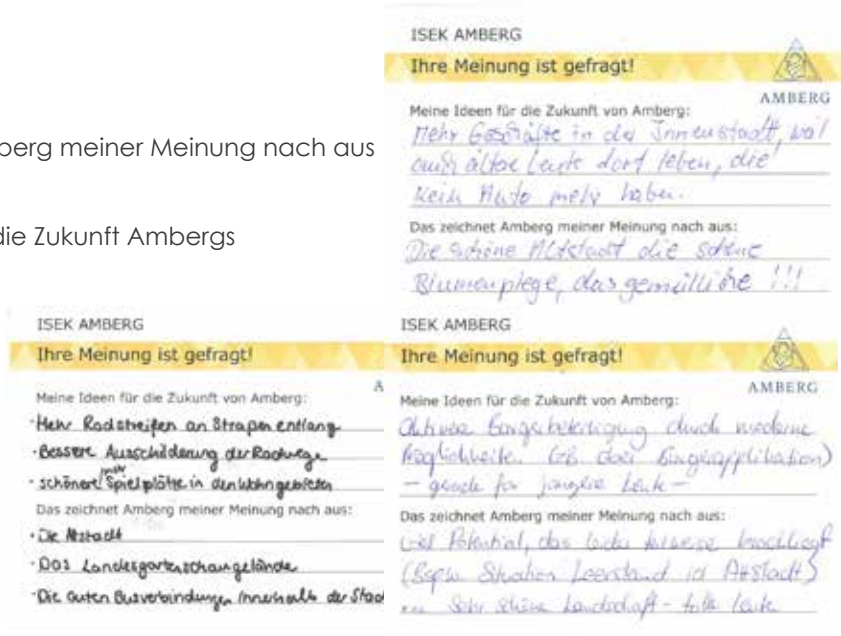 berg meiner Meinung nach aus
die Zukunft Ambergs
ISEK AMBERG
Ihre Meinung ist gefragt!
AMBERG
Meine Ideen für die Zukunft von Amberg:
Mehr Geschäfte in der Innenstadt, weil
auch ältere Leute dort leben, die
Kein Auto mehr haben.
Das zeichnet Amberg meiner Meinung nach aus:
Die schöne Altstadt die schöne
Blumenpflege, das gemütliche !!!
ISEK AMBERG
Ihre Meinung ist gefragt!
A
Meine Ideen für die Zukunft von Amberg:
· Mehr Radstreifen an Straßen entlang
· Bessere Ausschilderung der Radwege
· schönere mehr Spielplätze in den Wohngebieten
Das zeichnet Amberg meiner Meinung nach aus:
· Die Altstadt
· Das Landesgartenschaugelände
· Die guten Busverbindungen innerhalb der Stad
ISEK AMBERG
Ihre Meinung ist gefragt!
AMBERG
Meine Ideen für die Zukunft von Amberg:
Aktivere Bürgerbeteiligung durch moderne
Möglichkeiten (zB über Bürgerapplikation)
– gerade für jüngere Leute –
Das zeichnet Amberg meiner Meinung nach aus:
viel Potential, das leider teilweise brachliegt
(Bspw. Situation Leerstand id Altstadt)
... Sehr schöne Landschaft - tolle Leute